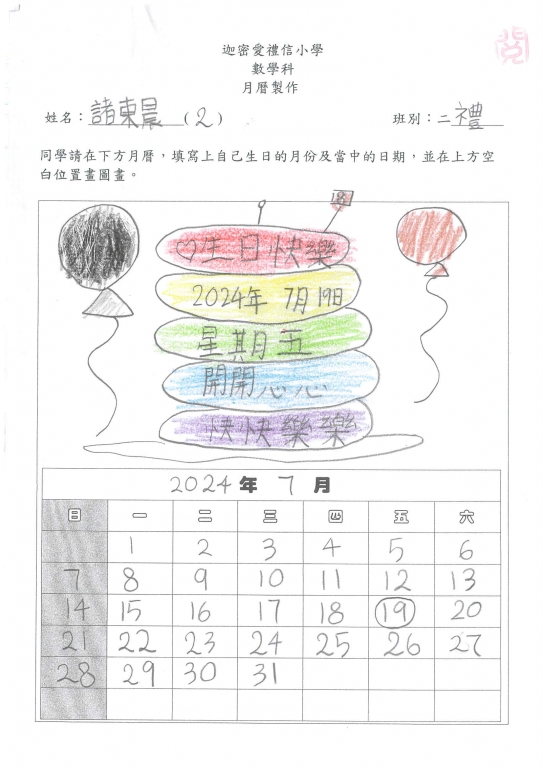 迦密愛禮信小學
數學科
月曆製作
姓名：諸東晨(2) 班別：二禮
同學請在下方月曆，填寫上自己生日的月份及當中的日期，並在上方空
白位置畫圖畫。
閱
♡生日快樂
2024年 7月19日
星期五
開開心心
快快樂樂
2024年 7月
日 一 二 三 四 五 六
1 2 3 4 5 6
7 8 9 10 11 12 13
14 15 16 17 18 19 20
21 22 23 24 25 26 27
28 29 30 31